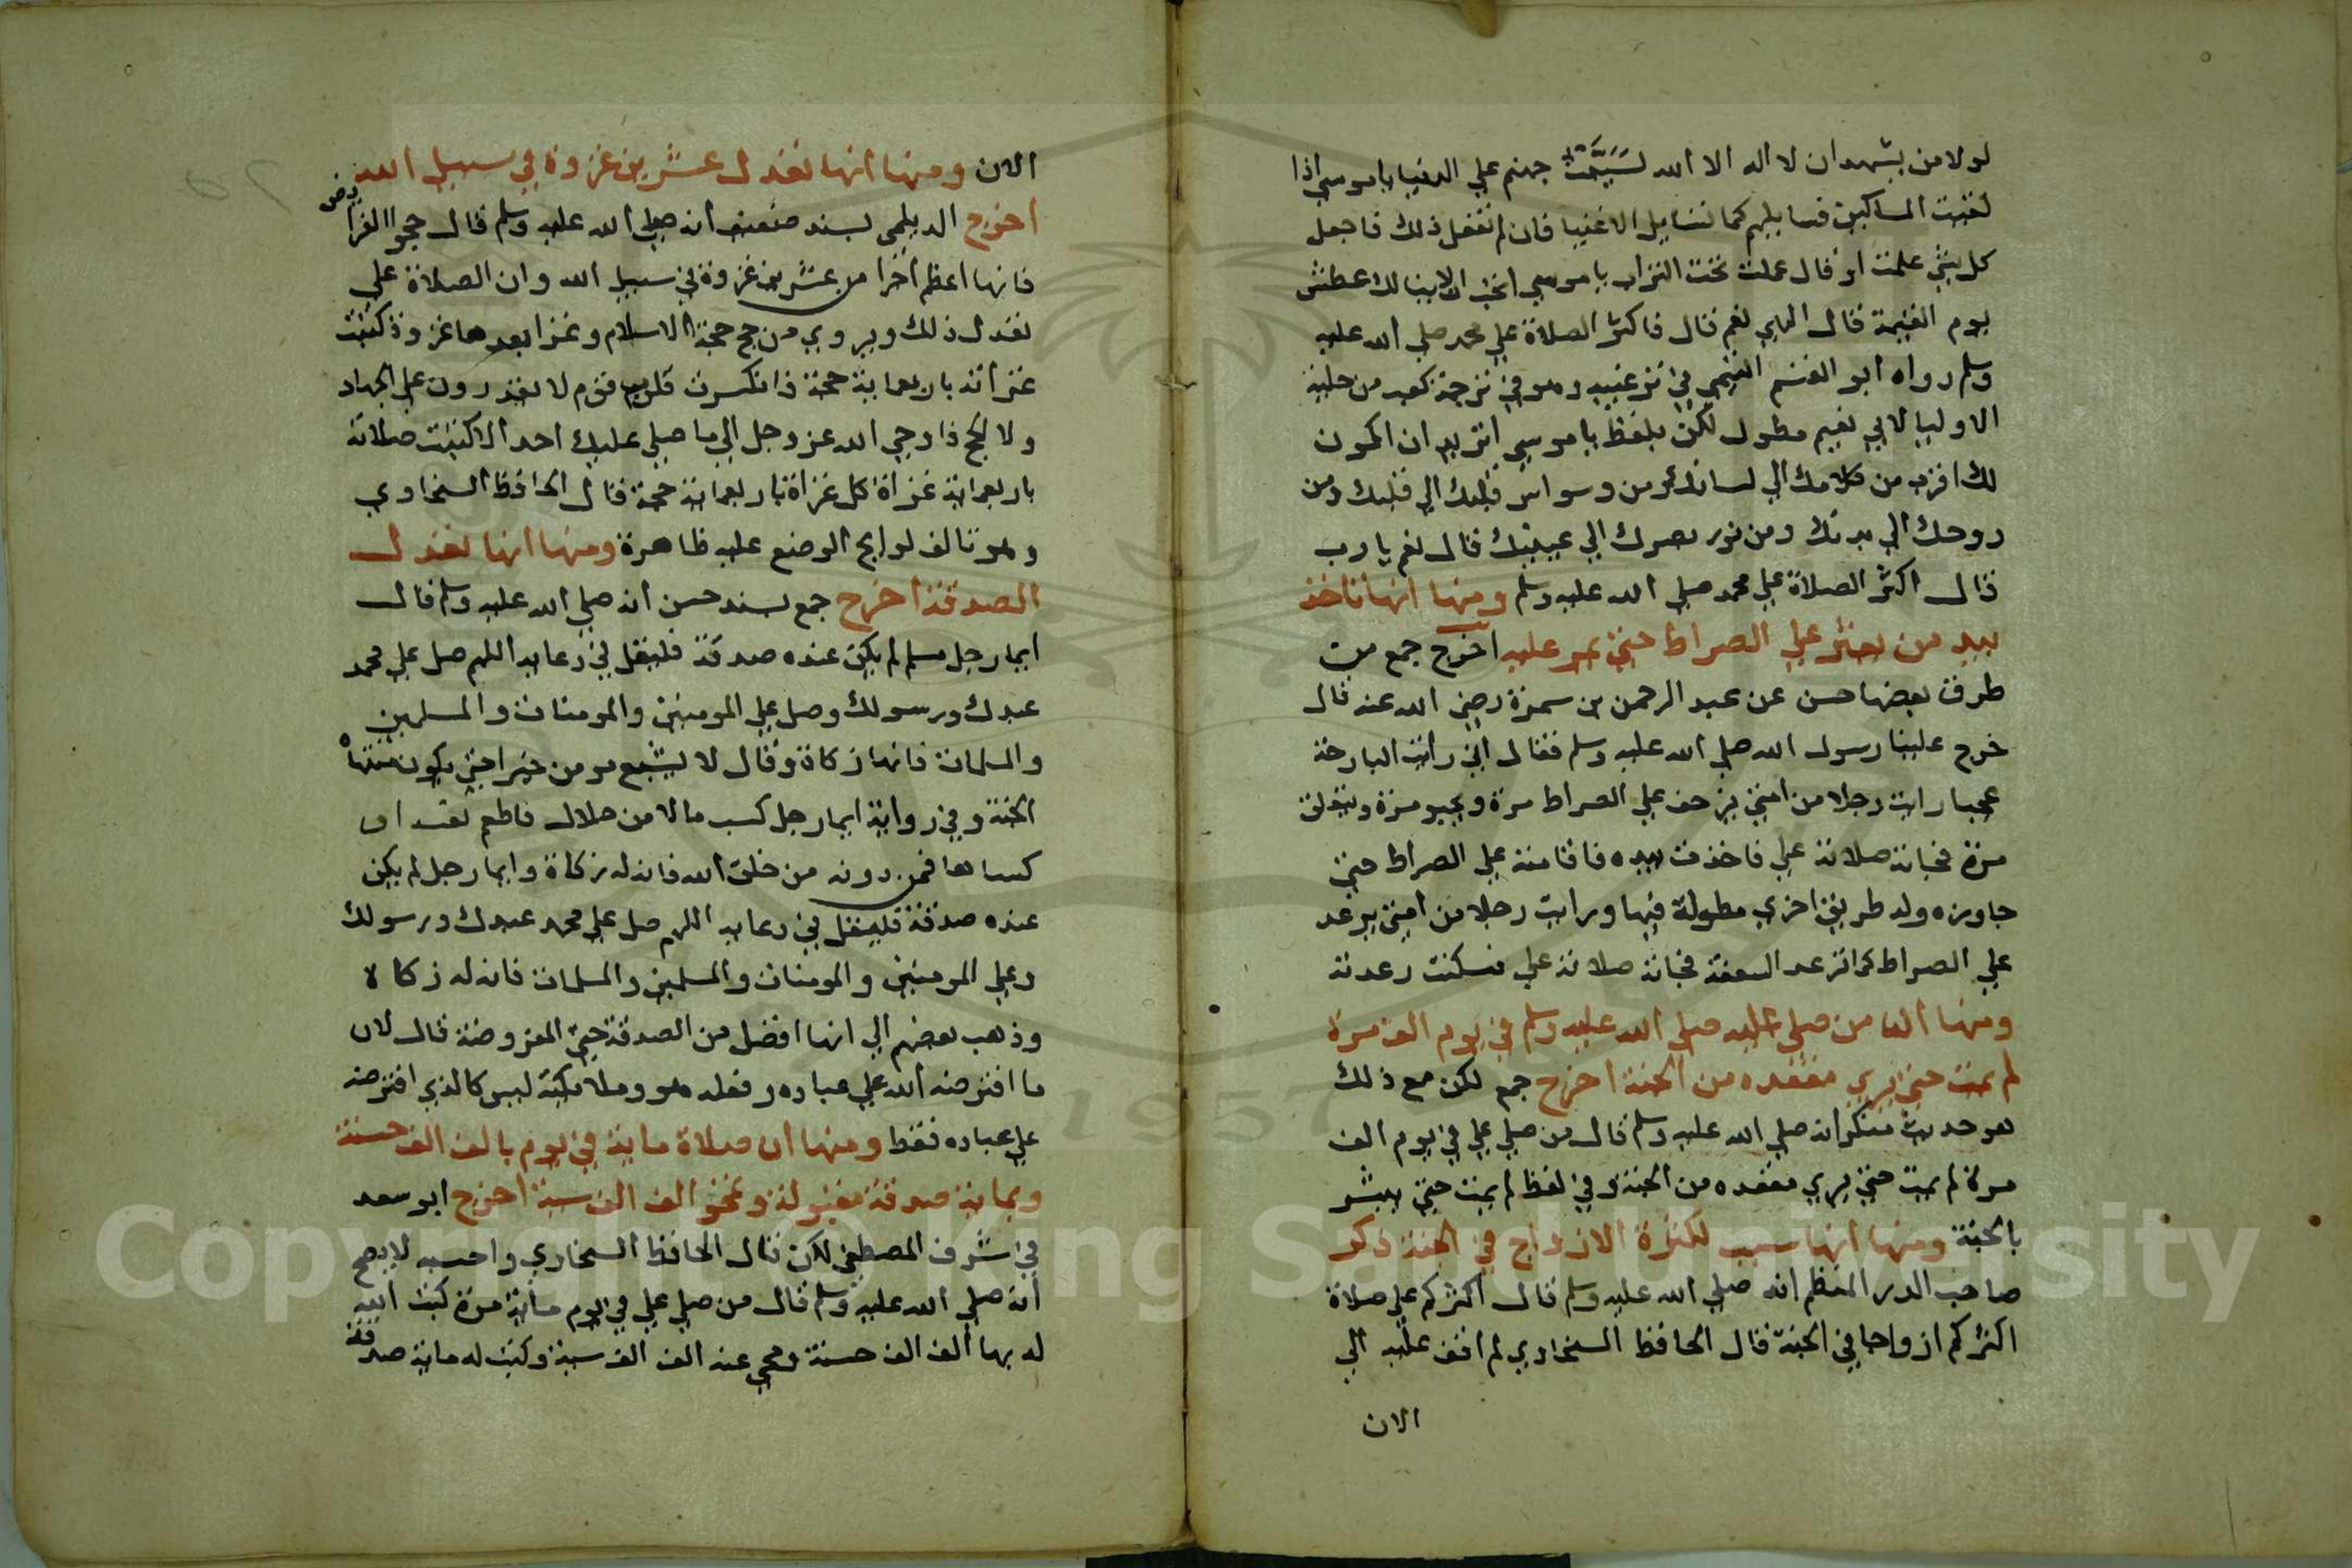 لولا من يشهد ان لا اله الا الله لسيبت جهنم علي الدنيا يا موسي اذا
لقيت المساكين فسايلهم كما تسايل الاغنيا فان لم تفعل ذلك فاجعل
كل شي علمت او قال عملت تحت التراب يا موسي اتحب ان لا ينالك عطش
يوم القيمة قال الهي نعم قال فاكثر الصلاة علي محمد صلي الله عليه
وسلم رواه ابو القسم التيمي في ترغيبه وهو في ترجمة كعب من حلية
الاوليا لابي نعيم مطول لكن بلفظ يا موسي اتريد ان اكون
لك اقرب من كلامك الي لسانك ومن وسواس قلبك الي قلبك ومن
روحك الي بدنك ومن نور بصرك الي عينيك قال نعم يا رب
قال اكثر الصلاة علي محمد صلي الله عليه وسلم ومنها انها تاخذ
بيد من يعثر علي الصراط حتي يمر عليه اخرج جمع من
طرق بعضها حسن عن عبد الرحمن بن سمرة رضي الله عنه قال
خرج علينا رسول الله صلي الله عليه وسلم فقال اني رايت البارحة
عجبا رايت رجلا من امتي يزحف علي الصراط مرة ويحبو مرة ويتعلق
مرة فجاته صلاته علي فاخذت بيده فاقامته علي الصراط حتي
جاوزه وله طريق اخري مطولة فيها ورايت رجلا من امتي يرعد
علي الصراط كما ترعد السعفة فجاته صلاته علي فسكنت رعدته
ومنها ان من صلي عليه صلي الله عليه وسلم في يوم الف مرة
لم يمت حتي يري مقعده من الجنة اخرج جمع لكن مع ذلك
هو حديث منكر انه صلي الله عليه وسلم قال من صلي علي في يوم الف
مرة لم يمت حتي يري مقعده من الجنة وفي لفظ لم يمت حتي يبشر
بالجنة ومنها انها سبب لكثرة الازواج في الجنة ذكر
صاحب الدر المنظم انه صلي الله عليه وسلم قال اكثركم علي صلاة
اكثركم ازواجا في الجنة قال الحافظ السخاوي لم اقف عليه الي
الان
الان ومنها انها تعدل عشرين غزوة في سبيل الله
اخرج الديلمي بسند ضعيف انه صلي الله عليه وسلم قال حجوا الفرايض
فانها اعظم اجرا من عشرين غزوة في سبيل الله وان الصلاة علي
تعدل ذلك ويروي من حج حجة الاسلام وغزا بعدها غزوة كتبت
غزاته باربعماية حجة فانكسرت قلوب قوم لا يقدرون علي الجهاد
ولا الحج فاوحي الله عز وجل الي ما صلي عليك احد الا كتبت صلاته
باربعماية غزاة كل غزاة باربعماية حجة قال الحافظ السخاوي
وهو تالف لوايح الوضع عليه ظاهرة ومنها انها تعدل
الصدقة اخرج جمع بسند حسن انه صلي الله عليه وسلم قال
ايما رجل مسلم لم يكن عنده صدقة فليقل في دعايه اللهم صل علي محمد
عبدك ورسولك وصل علي المومنين والمومنات والمسلمين
والمسلمات فانها زكاة وقال لا يشبع مومن خيرا حتي يكون منتهاه
الجنة وفي رواية ايما رجل كسب مالا من حلال فاطعم نفسه او
كساها فمن دونه من خلق الله فانه له زكاة وايما رجل لم يكن
عنده صدقة فليقل في دعايه اللهم صل علي محمد عبدك ورسولك
وعلي المومنين والمومنات والمسلمين والمسلمات فانه له زكاة
وذهب بعضهم الي انها افضل من الصدقة حتي المفروضة قال لان
ما افترضه الله علي عباده وفعله هو وملايكته ليس كالذي افترضه
علي عباده فقط ومنها ان صلاة ماية في يوم بالف الف حسنة
وبماية صدقة مقبولة وتمحو الف الف سيئة اخرج ابو سعد
في شرف المصطفي لكن قال الحافظ السخاوي واحسبه لا يصح
انه صلي الله عليه وسلم قال من صلي علي في يوم ماية مرة كتب الله
له بها الف الف حسنة ومحي عنه الف الف سيئة وكتب له ماية صدقة
Copyright © King Saud University
1957